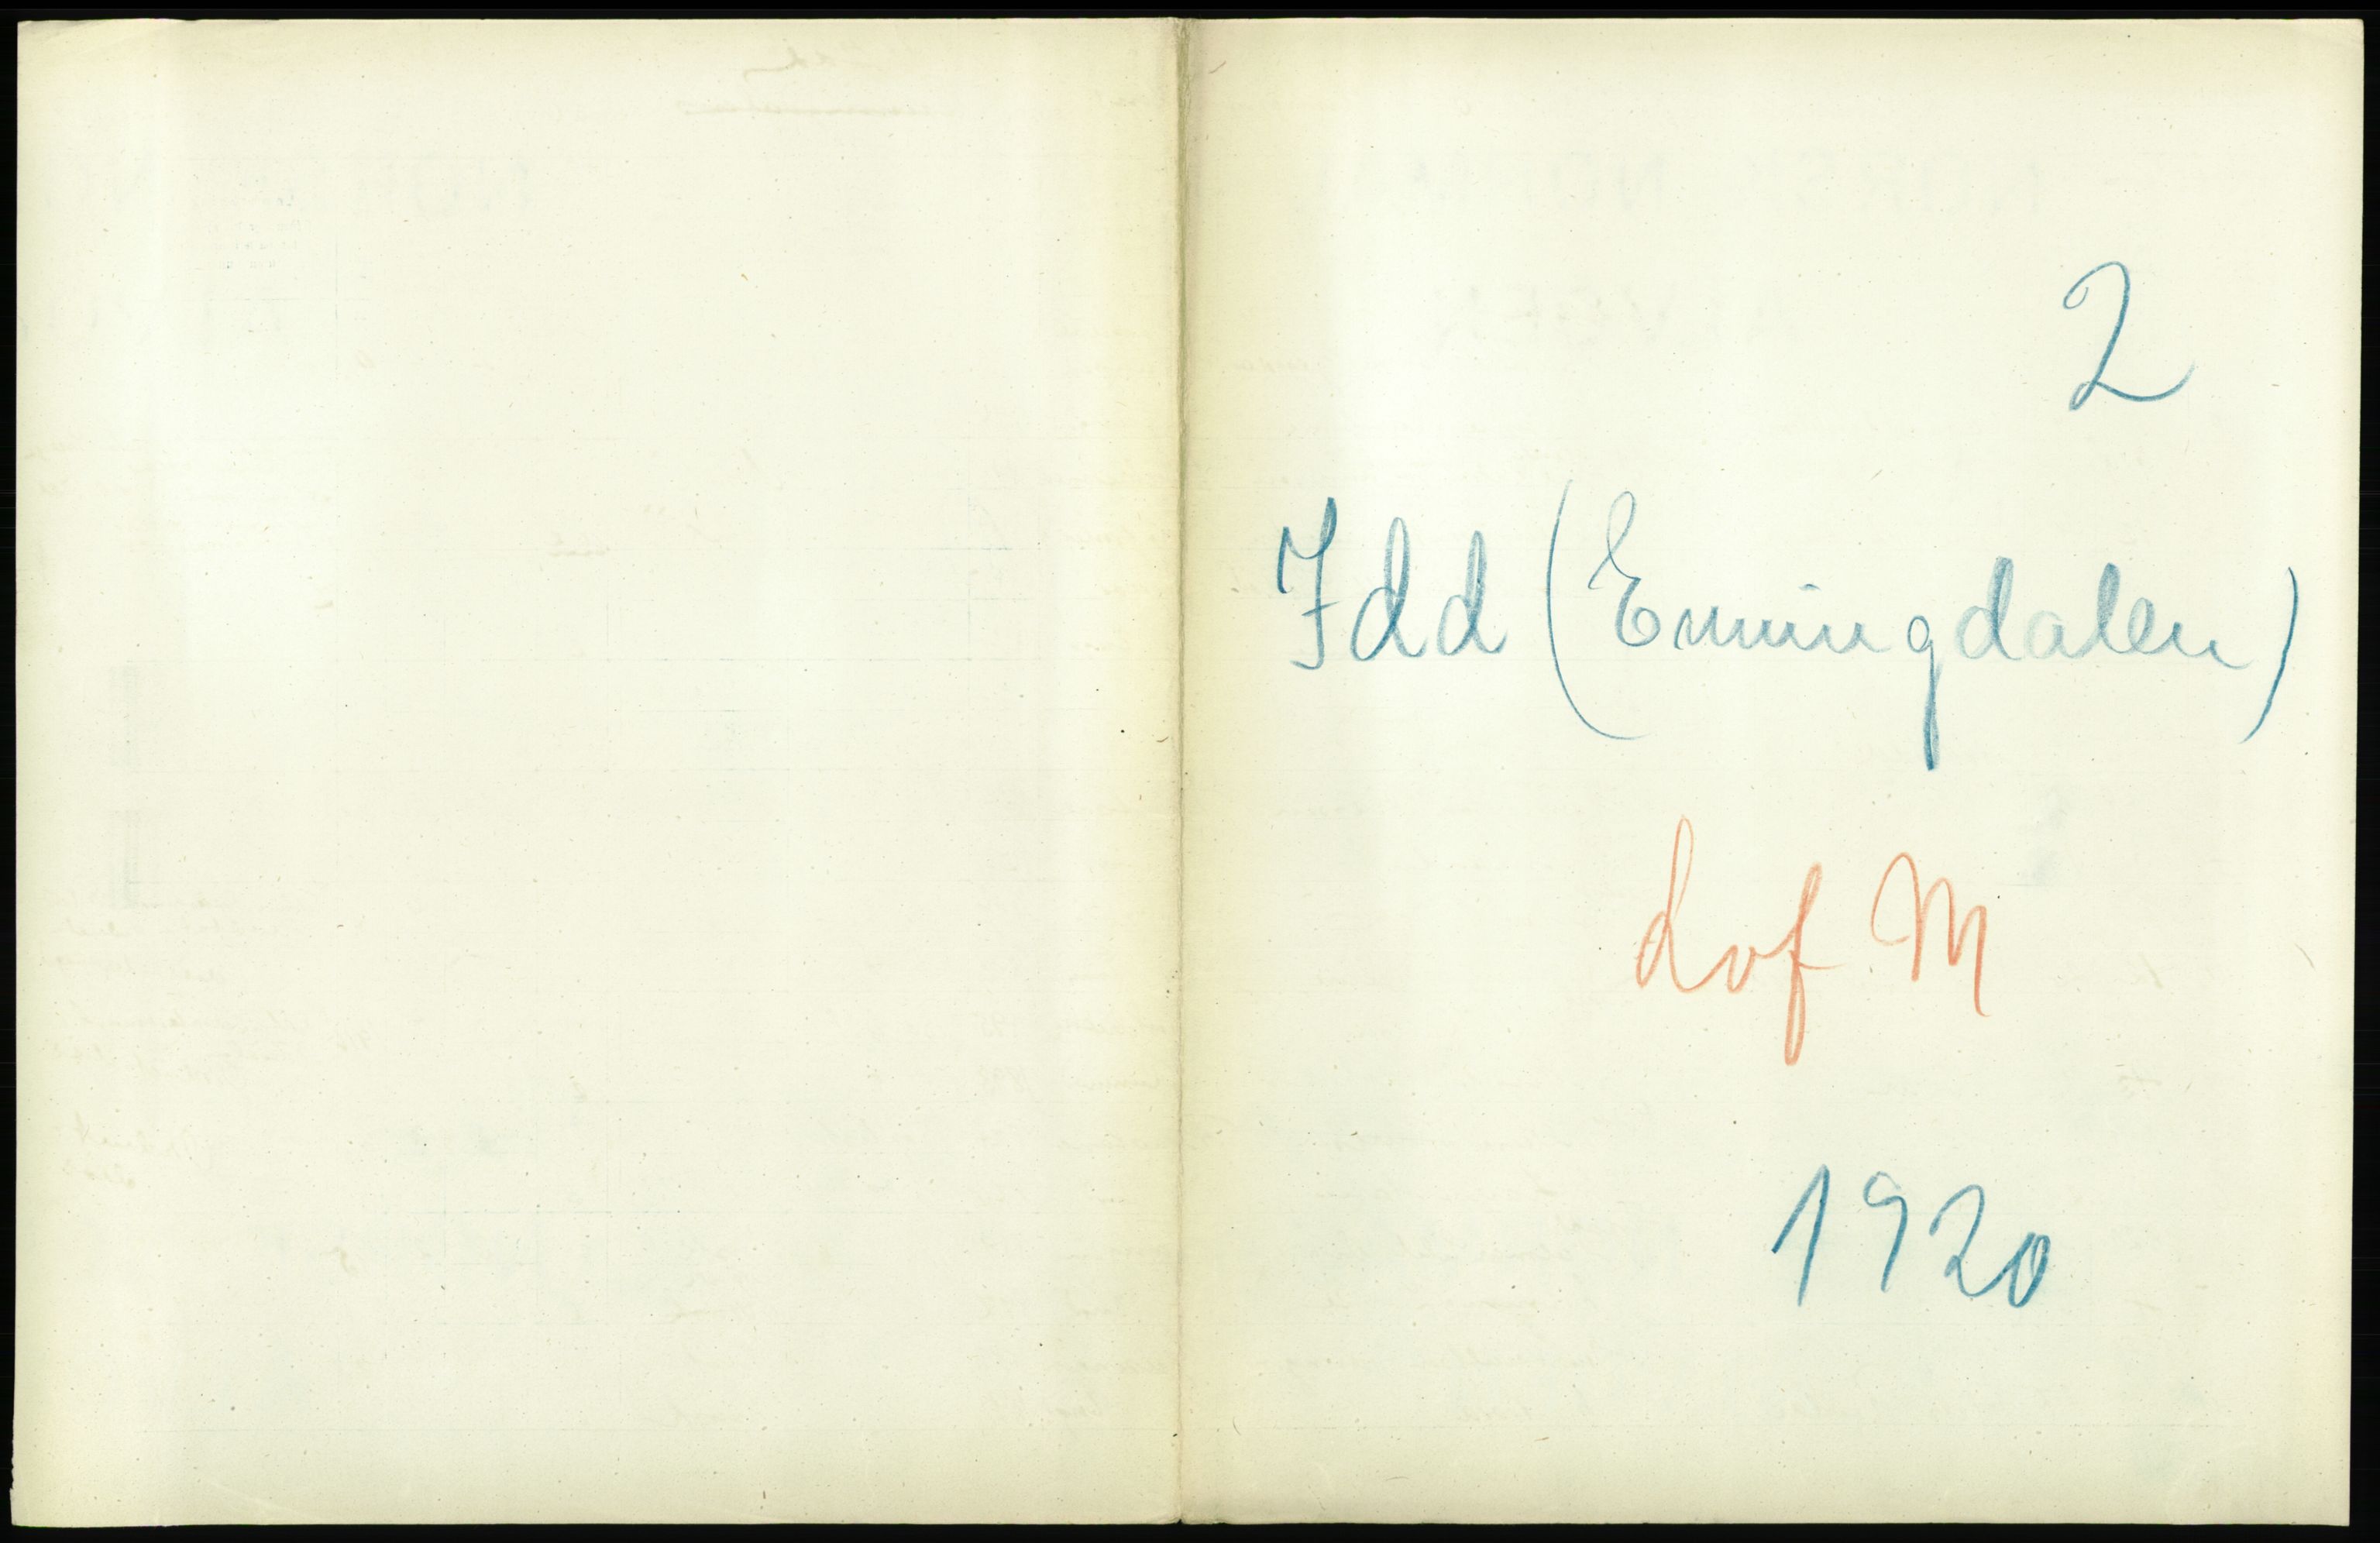 2
Idd (Enningdalen)
dof M
1920